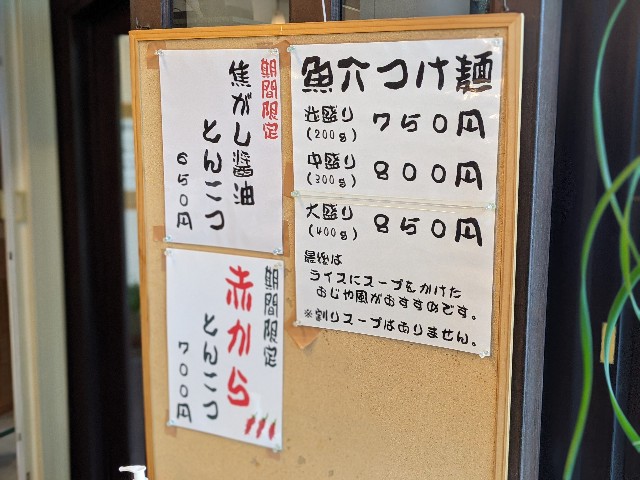 期間限定
焦がし醤油
とんこつ
650円
期間限定
赤から
とんこつ
700円
魚介つけ麺
並盛り 750円
(200g)
中盛り 800円
(300g)
大盛り 850円
(400g)
最後は
ライスにスープをかけた
おじや風がおすすめです。
※割りスープはありません。